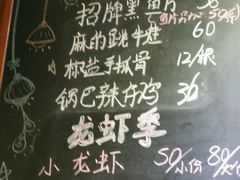 招牌黑鱼片 58
鱼片
麻的跳牛蛙 60
椒盐手抓骨 12/根
锅巴辣子鸡 36
龙虾季
小龙虾 50/小份 80/大份